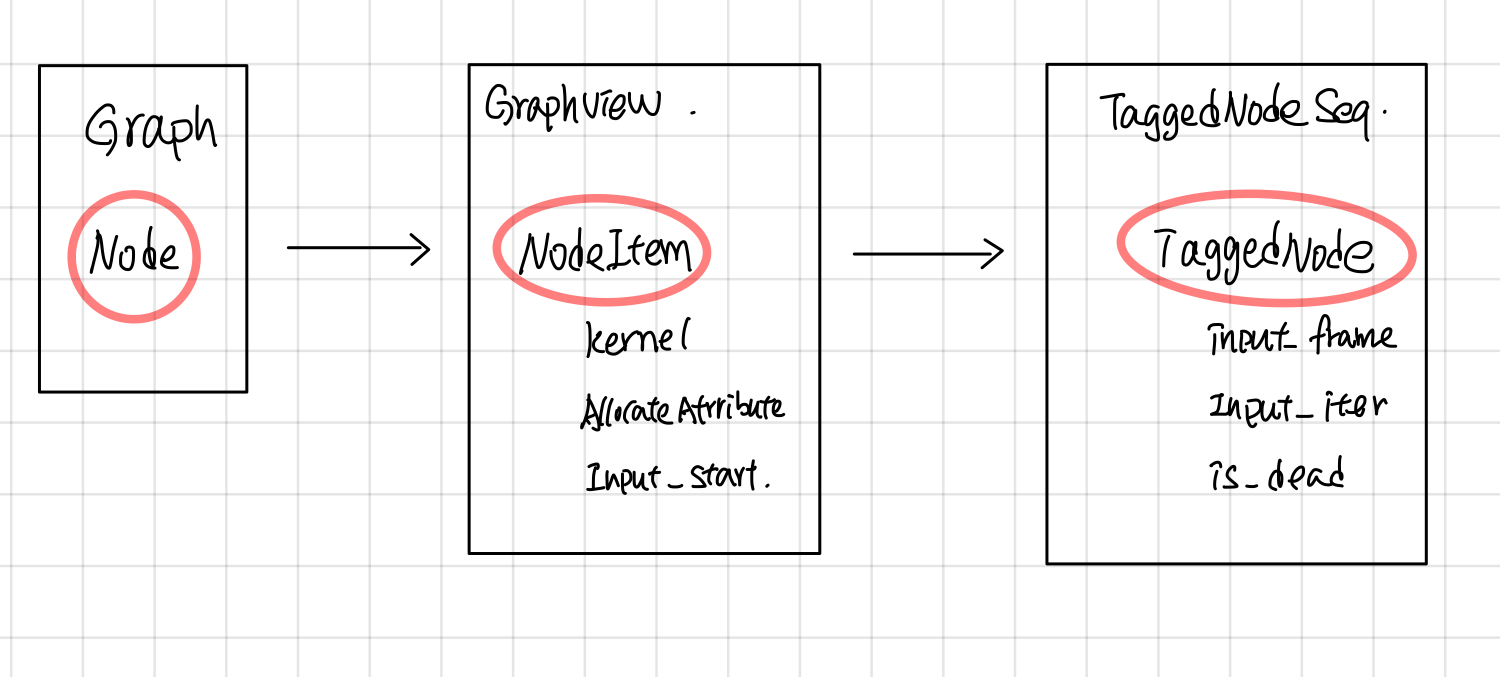 Graph
Node
GraphView.
NodeItem
kernel
AllocateAtrribute
Input_start.
TaggedNodeSeq.
TaggedNode
input_frame
Input_iter
is_dead